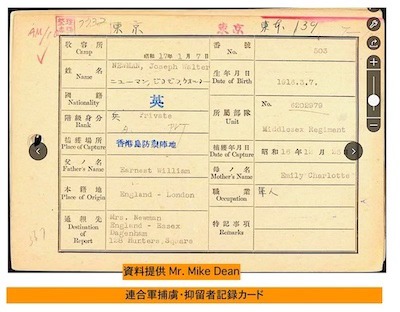 東京
東京
東京 139
収容所
Camp
昭和 17年 1月 7日
番號
No.
503
姓名
Name
NEWMAN, Joseph Walter
生年月日
Date of Birth
1916.3.7.
國籍
Nationality
英
所屬部隊
Unit
6202979
Middlesex Regiment
階級身分
Rank
英 Private
捕獲場所
Place of Capture
香港島防禦陣地
捕獲年月日
Date of Capture
昭和 16年 12月 25日
父ノ名
Father's Name
Earnest William
母ノ名
Mother's Name
Emily Charlotte
本籍地
Place of Origin
England - London
職業
Occupation
軍人
通報先
Destination of Report
Mrs. Newman
England - Essex
Dagenham
128 Hunters Square
特記事項
Remarks
資料提供 Mr. Mike Dean
連合軍捕虜・抑留者記録カード